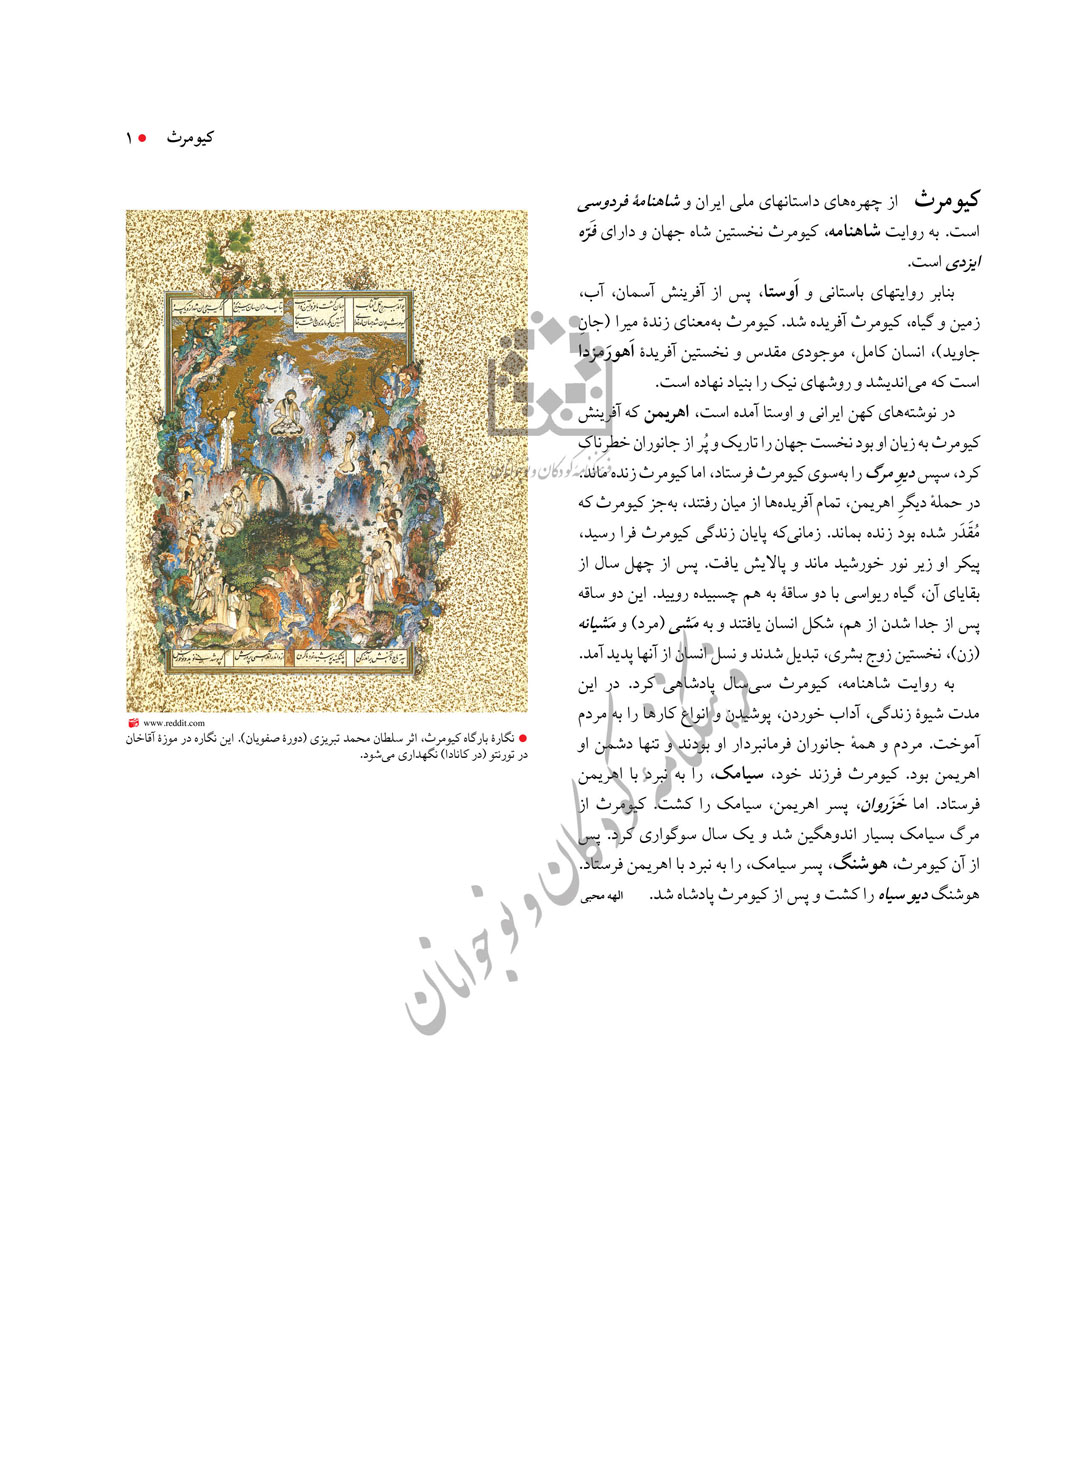 کیومرث ● ۱
کیومرث از چهره‌های داستانهای ملی ایران و شاهنامهٔ فردوسی
است. به روایت شاهنامه، کیومرث نخستین شاه جهان و دارای فَرّه
ایزدی است.
بنابر روایتهای باستانی و اَوستا، پس از آفرینش آسمان، آب،
زمین و گیاه، کیومرث آفریده شد. کیومرث به‌معنای زندهٔ میرا (جانِ
جاوید)، انسان کامل، موجودی مقدس و نخستین آفریدهٔ اَهورَمَزدا
است که می‌اندیشد و روشهای نیک را بنیاد نهاده است.
در نوشته‌های کهن ایرانی و اوستا آمده است، اهریمن که آفرینش
کیومرث به زیان او بود نخست جهان را تاریک و پُر از جانوران خطرناک
کرد، سپس دیوِ مرگ را به‌سوی کیومرث فرستاد، اما کیومرث زنده ماند.
در حملهٔ دیگرِ اهریمن، تمام آفریده‌ها از میان رفتند، به‌جز کیومرث که
مُقَدَر شده بود زنده بماند. زمانی‌که پایان زندگی کیومرث فرا رسید،
پیکر او زیر نور خورشید ماند و پالایش یافت. پس از چهل سال از
بقایای آن، گیاه ریواسی با دو ساقهٔ به هم چسبیده رویید. این دو ساقه
پس از جدا شدن از هم، شکل انسان یافتند و به مَشی (مرد) و مَشیانه
(زن)، نخستین زوج بشری، تبدیل شدند و نسل انسان از آنها پدید آمد.
به روایت شاهنامه، کیومرث سی‌سال پادشاهی کرد. در این
مدت شیوهٔ زندگی، آداب خوردن، پوشیدن و انواع کارها را به مردم
آموخت. مردم و همهٔ جانوران فرمانبردار او بودند و تنها دشمن او
اهریمن بود. کیومرث فرزند خود، سیامک، را به نبرد با اهریمن
فرستاد. اما خَزَروان، پسر اهریمن، سیامک را کشت. کیومرث از
مرگ سیامک بسیار اندوهگین شد و یک سال سوگواری کرد. پس
از آن کیومرث، هوشنگ، پسر سیامک، را به نبرد با اهریمن فرستاد.
هوشنگ دیو سیاه را کشت و پس از کیومرث پادشاه شد. الهه محبی
www.reddit.com
● نگارهٔ بارگاه کیومرث، اثر سلطان محمد تبریزی (دورهٔ صفویان). این نگاره در موزهٔ آقاخان
در تورنتو (در کانادا) نگهداری می‌شود.
فرهنگنامهٔ کودکان و نوجوانان
فرهنگنامهٔ کودکان و نوجوانان